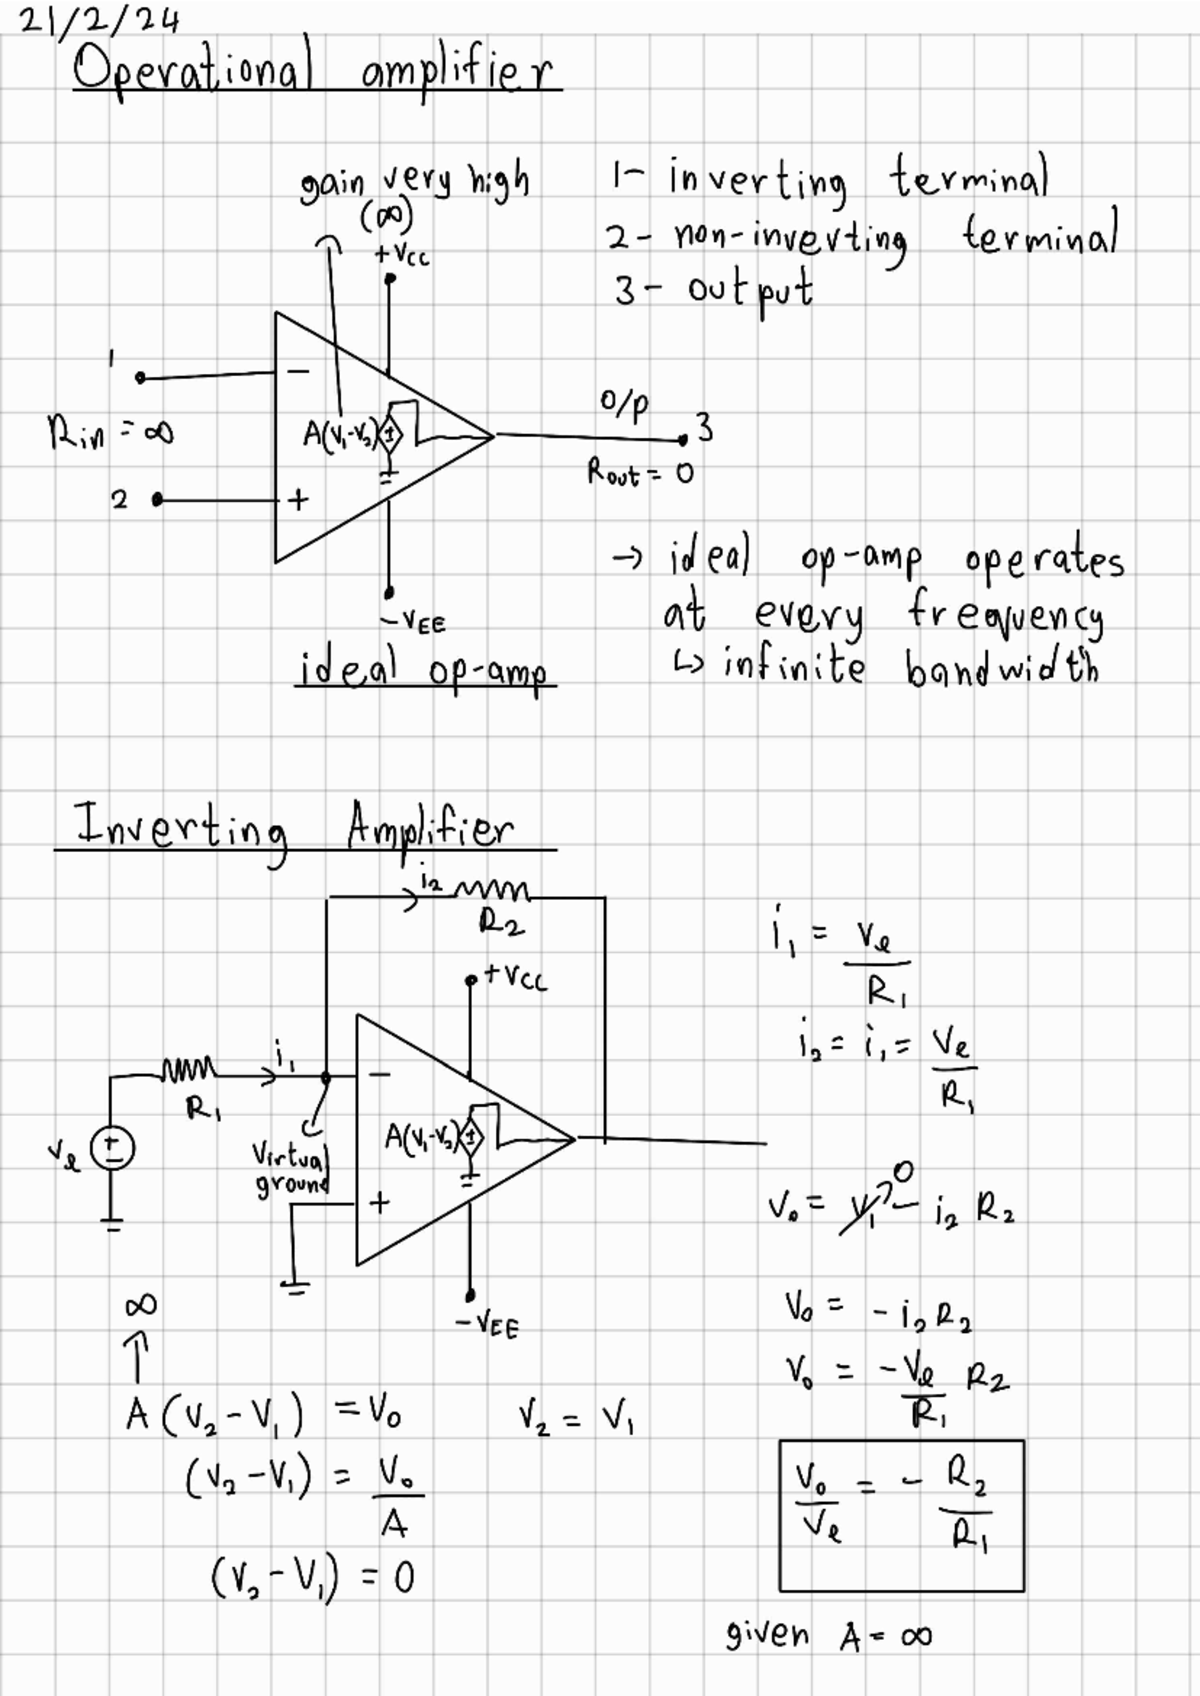 21/2/24
Operational amplifier
gain very high
(∞)
+VCC
1- inverting terminal
2- non-inverting terminal
3- output
1
−
Rin = ∞
A(V₁-V₂)
±
O/P
3
Rout = 0
2
+
-VEE
ideal op-amp
→ ideal op-amp operates
at every frequency
↳ infinite bandwidth
Inverting Amplifier
i₂
R₂
+VCC
i₁
R₁
−
Ve
±
Virtual
ground
A(V₁-V₂)
±
+
-VEE
i₁ = Ve/R₁
i₂ = i₁ = Ve/R₁
V₀ = V₁→0 - i₂ R₂
V₀ = - i₂ R₂
V₀ = -Ve/R₁ R₂
V₀/Ve = - R₂/R₁
given A = ∞
∞
↑
A (V₂ - V₁) = V₀
V₂ = V₁
(V₂ - V₁) = V₀/A
(V₂ - V₁) = 0